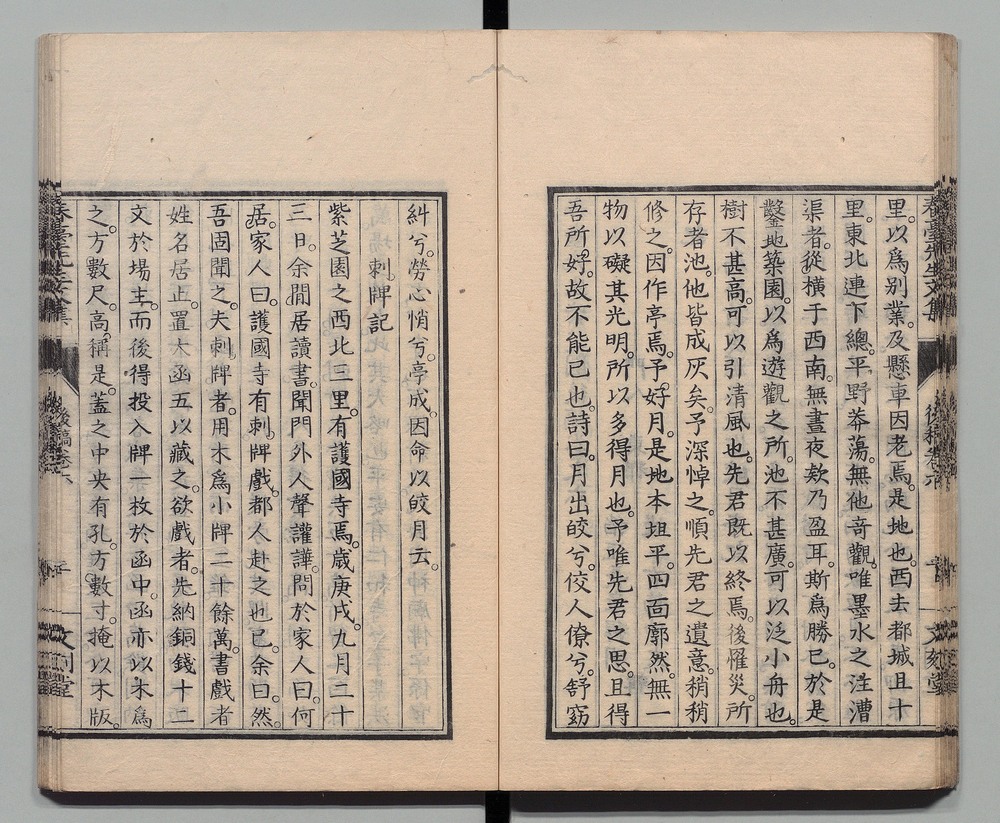 里。以爲別業。及懸車因老焉。是地也。西去都城且十
里。東北連下總。平野莽蕩。無他奇觀。唯墨水之注漕
渠者。從橫于西南。無晝夜欸乃盈耳。斯爲勝已。於是
鑿地築園。以爲遊觀之所。池不甚廣。可以泛小舟也。
樹不甚高。可以引清風也。先君既以終焉。後罹災。所
存者池。他皆成灰矣。予深悼之。順先君之遺意。稍稍
修之。因作亭焉。予好月。是地本坦平。四面廓然。無一
物以礙其光明。所以多得月也。予唯先君之思。且得
吾所好。故不能已也。詩曰。月出皎兮。佼人僚兮。舒窈
糾兮。勞心悄兮。亭成。因命以皎月云。
刺牌記
紫芝園之西北三里。有護國寺焉。歲庚戌。九月二十
三日。余閒居讀書。聞門外人聲讙譁。問於家人曰。何
居。家人曰。護國寺有刺牌戲。都人赴之也已。余曰。然
吾固聞之。夫刺牌者。用木爲小牌二十餘萬。書戲者
姓名居止。置大函五以藏之。欲戲者。先納銅錢十二
文於場主。而後得投入牌一枚於函中。函亦以木爲
之。方數尺。高。稱是。蓋之中央有孔。方數寸。掩以木版。
春臺先生文集
後稿卷六
文刻堂